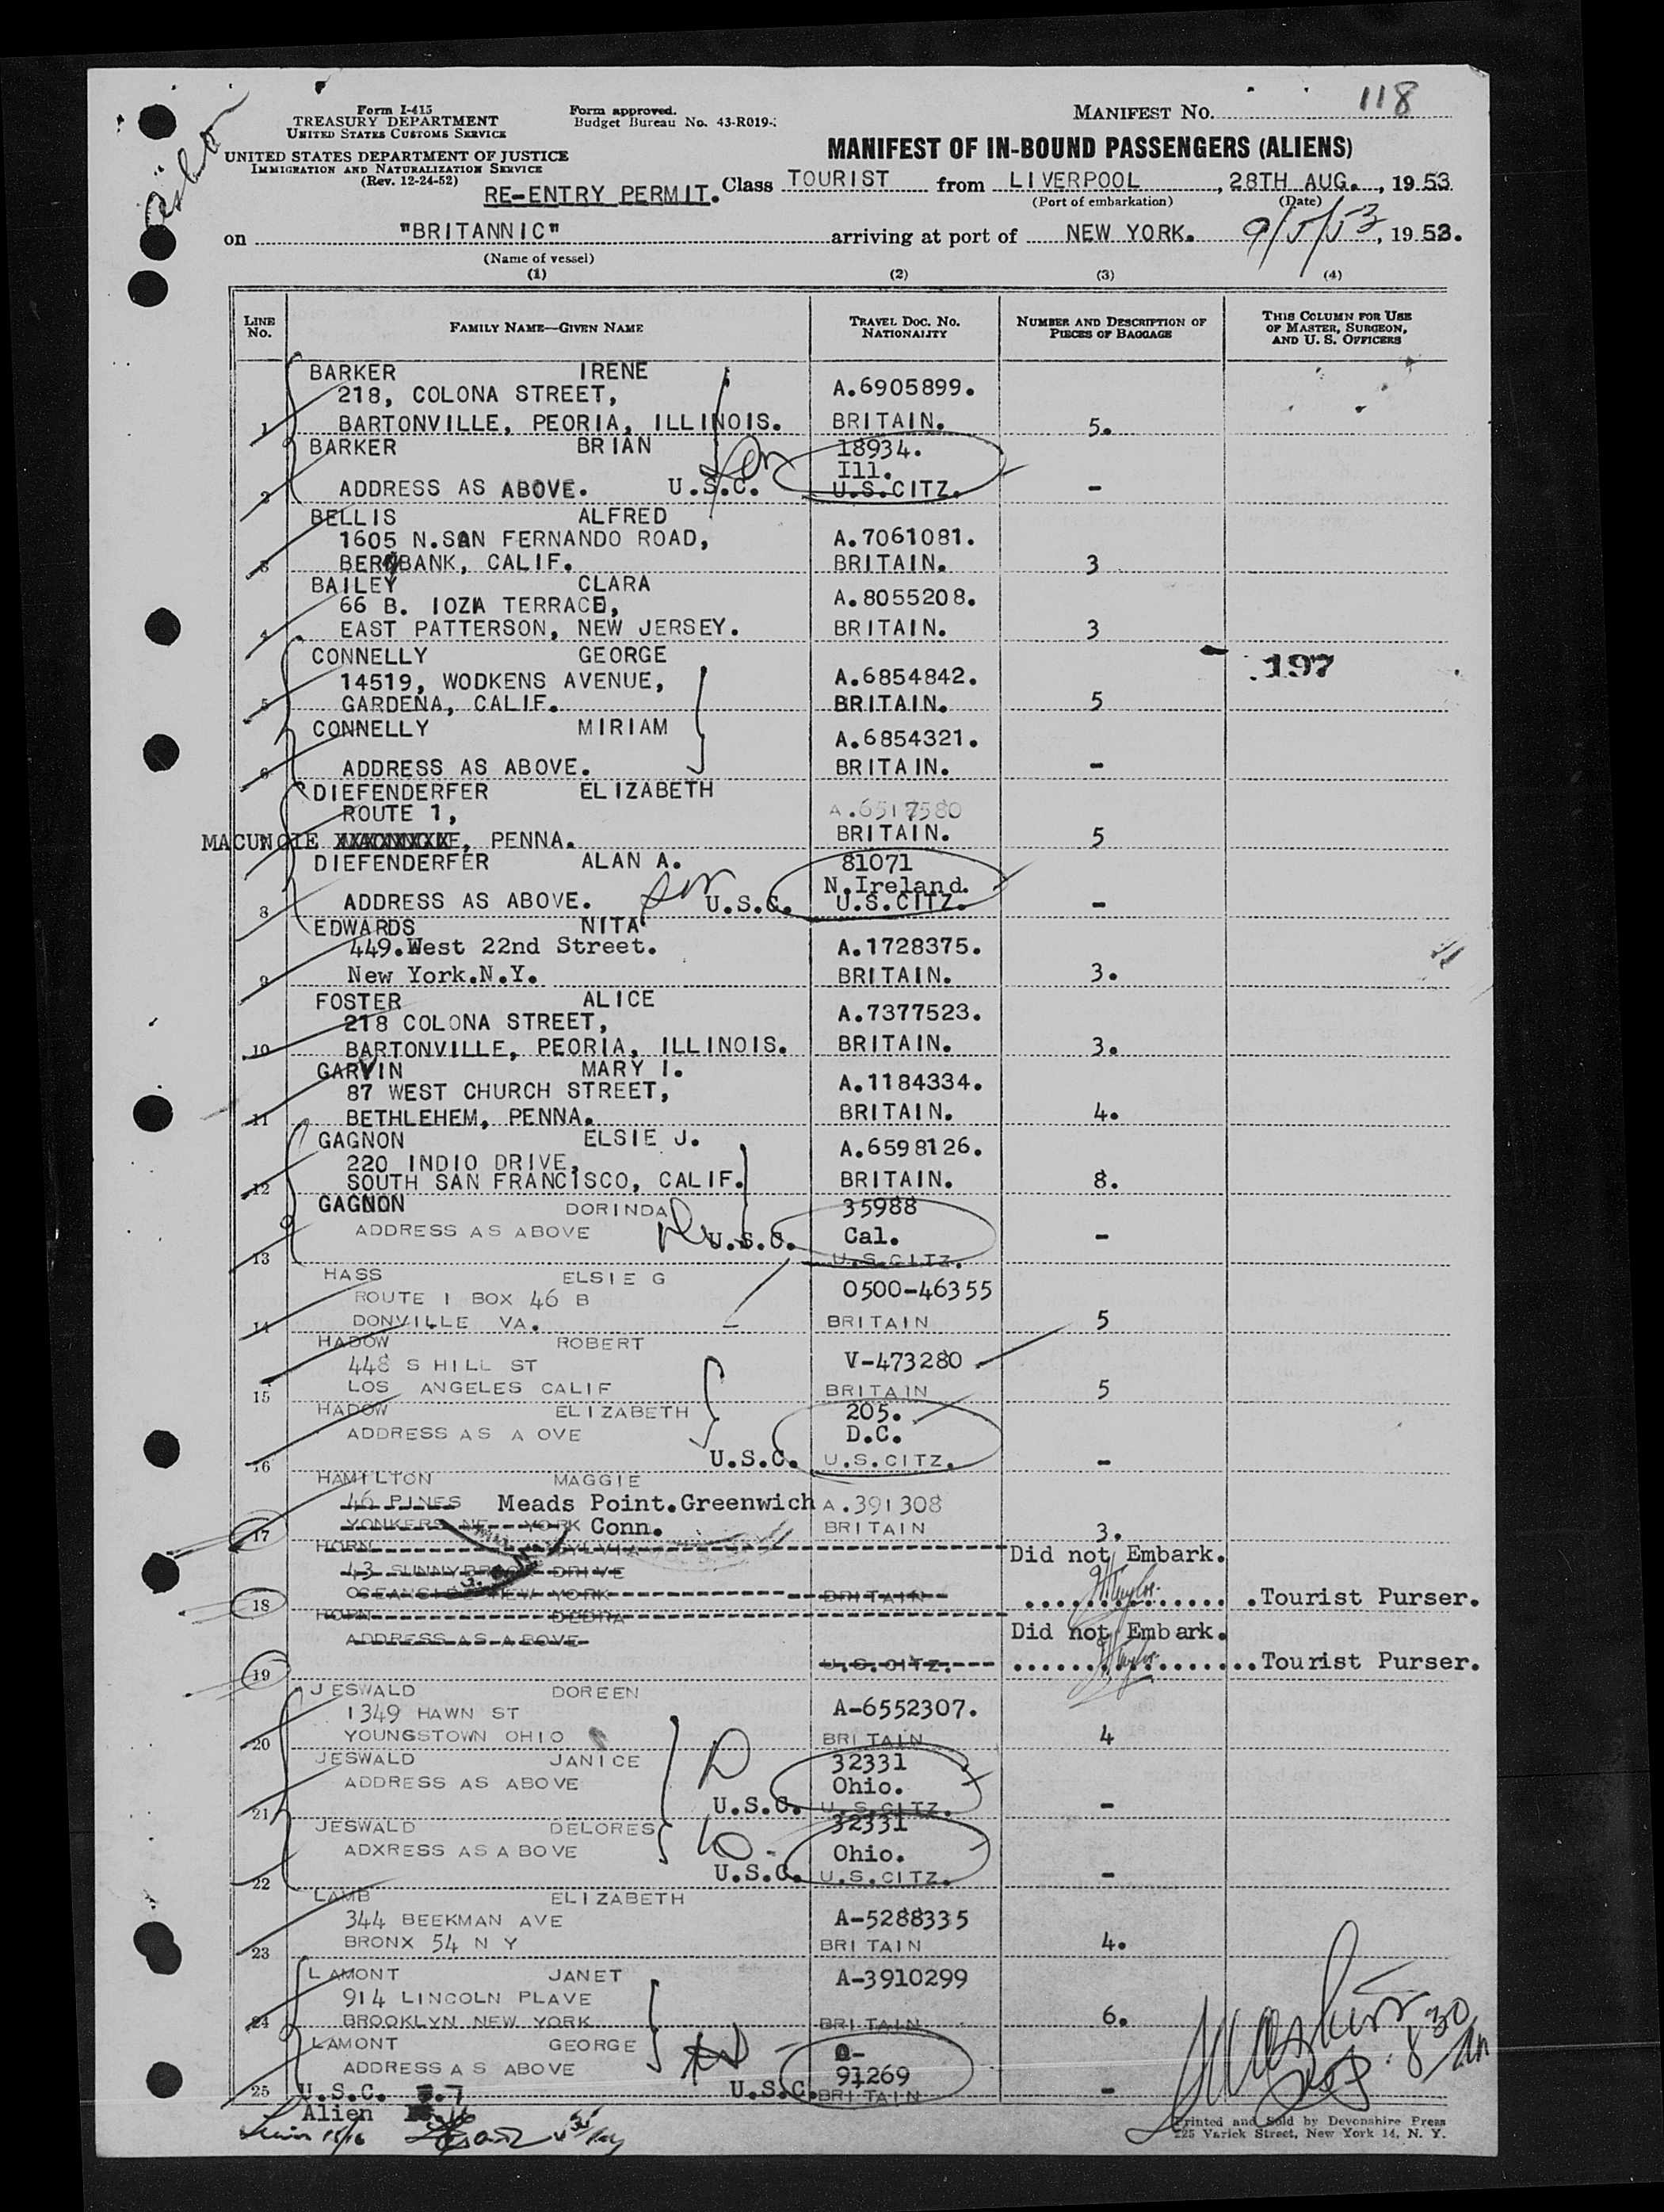 118
Form I-415
TREASURY DEPARTMENT
UNITED STATES CUSTOMS SERVICE
Form approved.
Budget Bureau No. 43-R019-
MANIFEST NO.
UNITED STATES DEPARTMENT OF JUSTICE
IMMIGRATION AND NATURALIZATION SERVICE
(Rev. 12-24-52)
MANIFEST OF IN-BOUND PASSENGERS (ALIENS)
RE-ENTRY PERMIT. Class TOURIST from LIVERPOOL, 28TH AUG., 1953
(Port of embarkation) (Date)
on "BRITANNIC" arriving at port of NEW YORK. 9/5/53, 1953.
(Name of vessel)
(1) (2) (3) (4)
LINE NO. FAMILY NAME—GIVEN NAME TRAVEL DOC. NO. NATIONALITY NUMBER AND DESCRIPTION OF PIECES OF BAGGAGE THIS COLUMN FOR USE OF MASTER, SURGEON, AND U. S. OFFICERS
BARKER IRENE
218, COLONA STREET, A.6905899.
1 BARTONVILLE, PEORIA, ILLINOIS. BRITAIN. 5.
BARKER BRIAN 18934.
Ill.
2 ADDRESS AS ABOVE. U.S.C. U.S.CITZ. -
BELLIS ALFRED
1605 N.SAN FERNANDO ROAD, A.7061081.
3 BERNBANK, CALIF. BRITAIN. 3
BAILEY CLARA
66 B. IOZA TERRACE, A.8055208.
4 EAST PATTERSON, NEW JERSEY. BRITAIN. 3
CONNELLY GEORGE 197
14519, WODKENS AVENUE, A.6854842.
5 GARDENA, CALIF. BRITAIN. 5
CONNELLY MIRIAM A.6854321.
6 ADDRESS AS ABOVE. BRITAIN. -
DIEFENDERFER ELIZABETH
ROUTE 1, A.6517580
MACUNGIE, PENNA. BRITAIN. 5
DIEFENDERFER ALAN A. 81071
N.Ireland.
8 ADDRESS AS ABOVE. U.S.C. U.S.CITZ. -
EDWARDS NITA
449.West 22nd Street. A.1728375.
9 New York.N.Y. BRITAIN. 3.
FOSTER ALICE
218 COLONA STREET, A.7377523.
10 BARTONVILLE, PEORIA, ILLINOIS. BRITAIN. 3.
GARVIN MARY I.
87 WEST CHURCH STREET, A.1184334.
11 BETHLEHEM, PENNA. BRITAIN. 4.
GAGNON ELSIE J.
220 INDIO DRIVE, A.6598126.
12 SOUTH SAN FRANCISCO, CALIF. BRITAIN. 8.
GAGNON DORINDA 35988
ADDRESS AS ABOVE U.S.C. Cal. -
13 U.S.CITZ.
HASS ELSIE G
ROUTE 1 BOX 46 B 0500-46355
14 DONVILLE VA. BRITAIN 5
HADOW ROBERT
448 S HILL ST V-473280
15 LOS ANGELES CALIF BRITAIN 5
HADOW ELIZABETH 205.
ADDRESS AS A OVE D.C.
16 U.S.C. U.S.CITZ. -
HAMILTON MAGGIE
46 PINES Meads Point.Greenwich A.391308
17 YONKERS NE YORK Conn. BRITAIN 3.
HORN SYLVIA Did not Embark.
43 SUNNYBROOK DRIVE
18 OCEANSIDE NEW YORK BRITAIN Tourist Purser.
HORN DEBRA Did not Embark.
ADDRESS AS ABOVE
19 U.S.CITZ. Tourist Purser.
JESWALD DOREEN
1349 HAWN ST A-6552307.
20 YOUNGSTOWN OHIO BRITAIN 4
JESWALD JANICE 32331
ADDRESS AS ABOVE Ohio.
21 U.S.C. U.S.CITZ. -
JESWALD DELORES 32331
ADXRESS AS ABOVE Ohio.
22 U.S.C. U.S.CITZ. -
LAMB ELIZABETH
344 BEEKMAN AVE A-5288335
23 BRONX 54 N Y BRITAIN 4.
LAMONT JANET A-3910299
914 LINCOLN PLAVE
24 BROOKLYN NEW YORK BRITAIN 6.
LAMONT GEORGE
ADDRESS AS ABOVE 91269
25 U.S.C. BRITAIN -
U.S.C. 7
Alien
8 30
Printed and Sold by Devonshire Press
225 Varick Street, New York 14, N. Y.